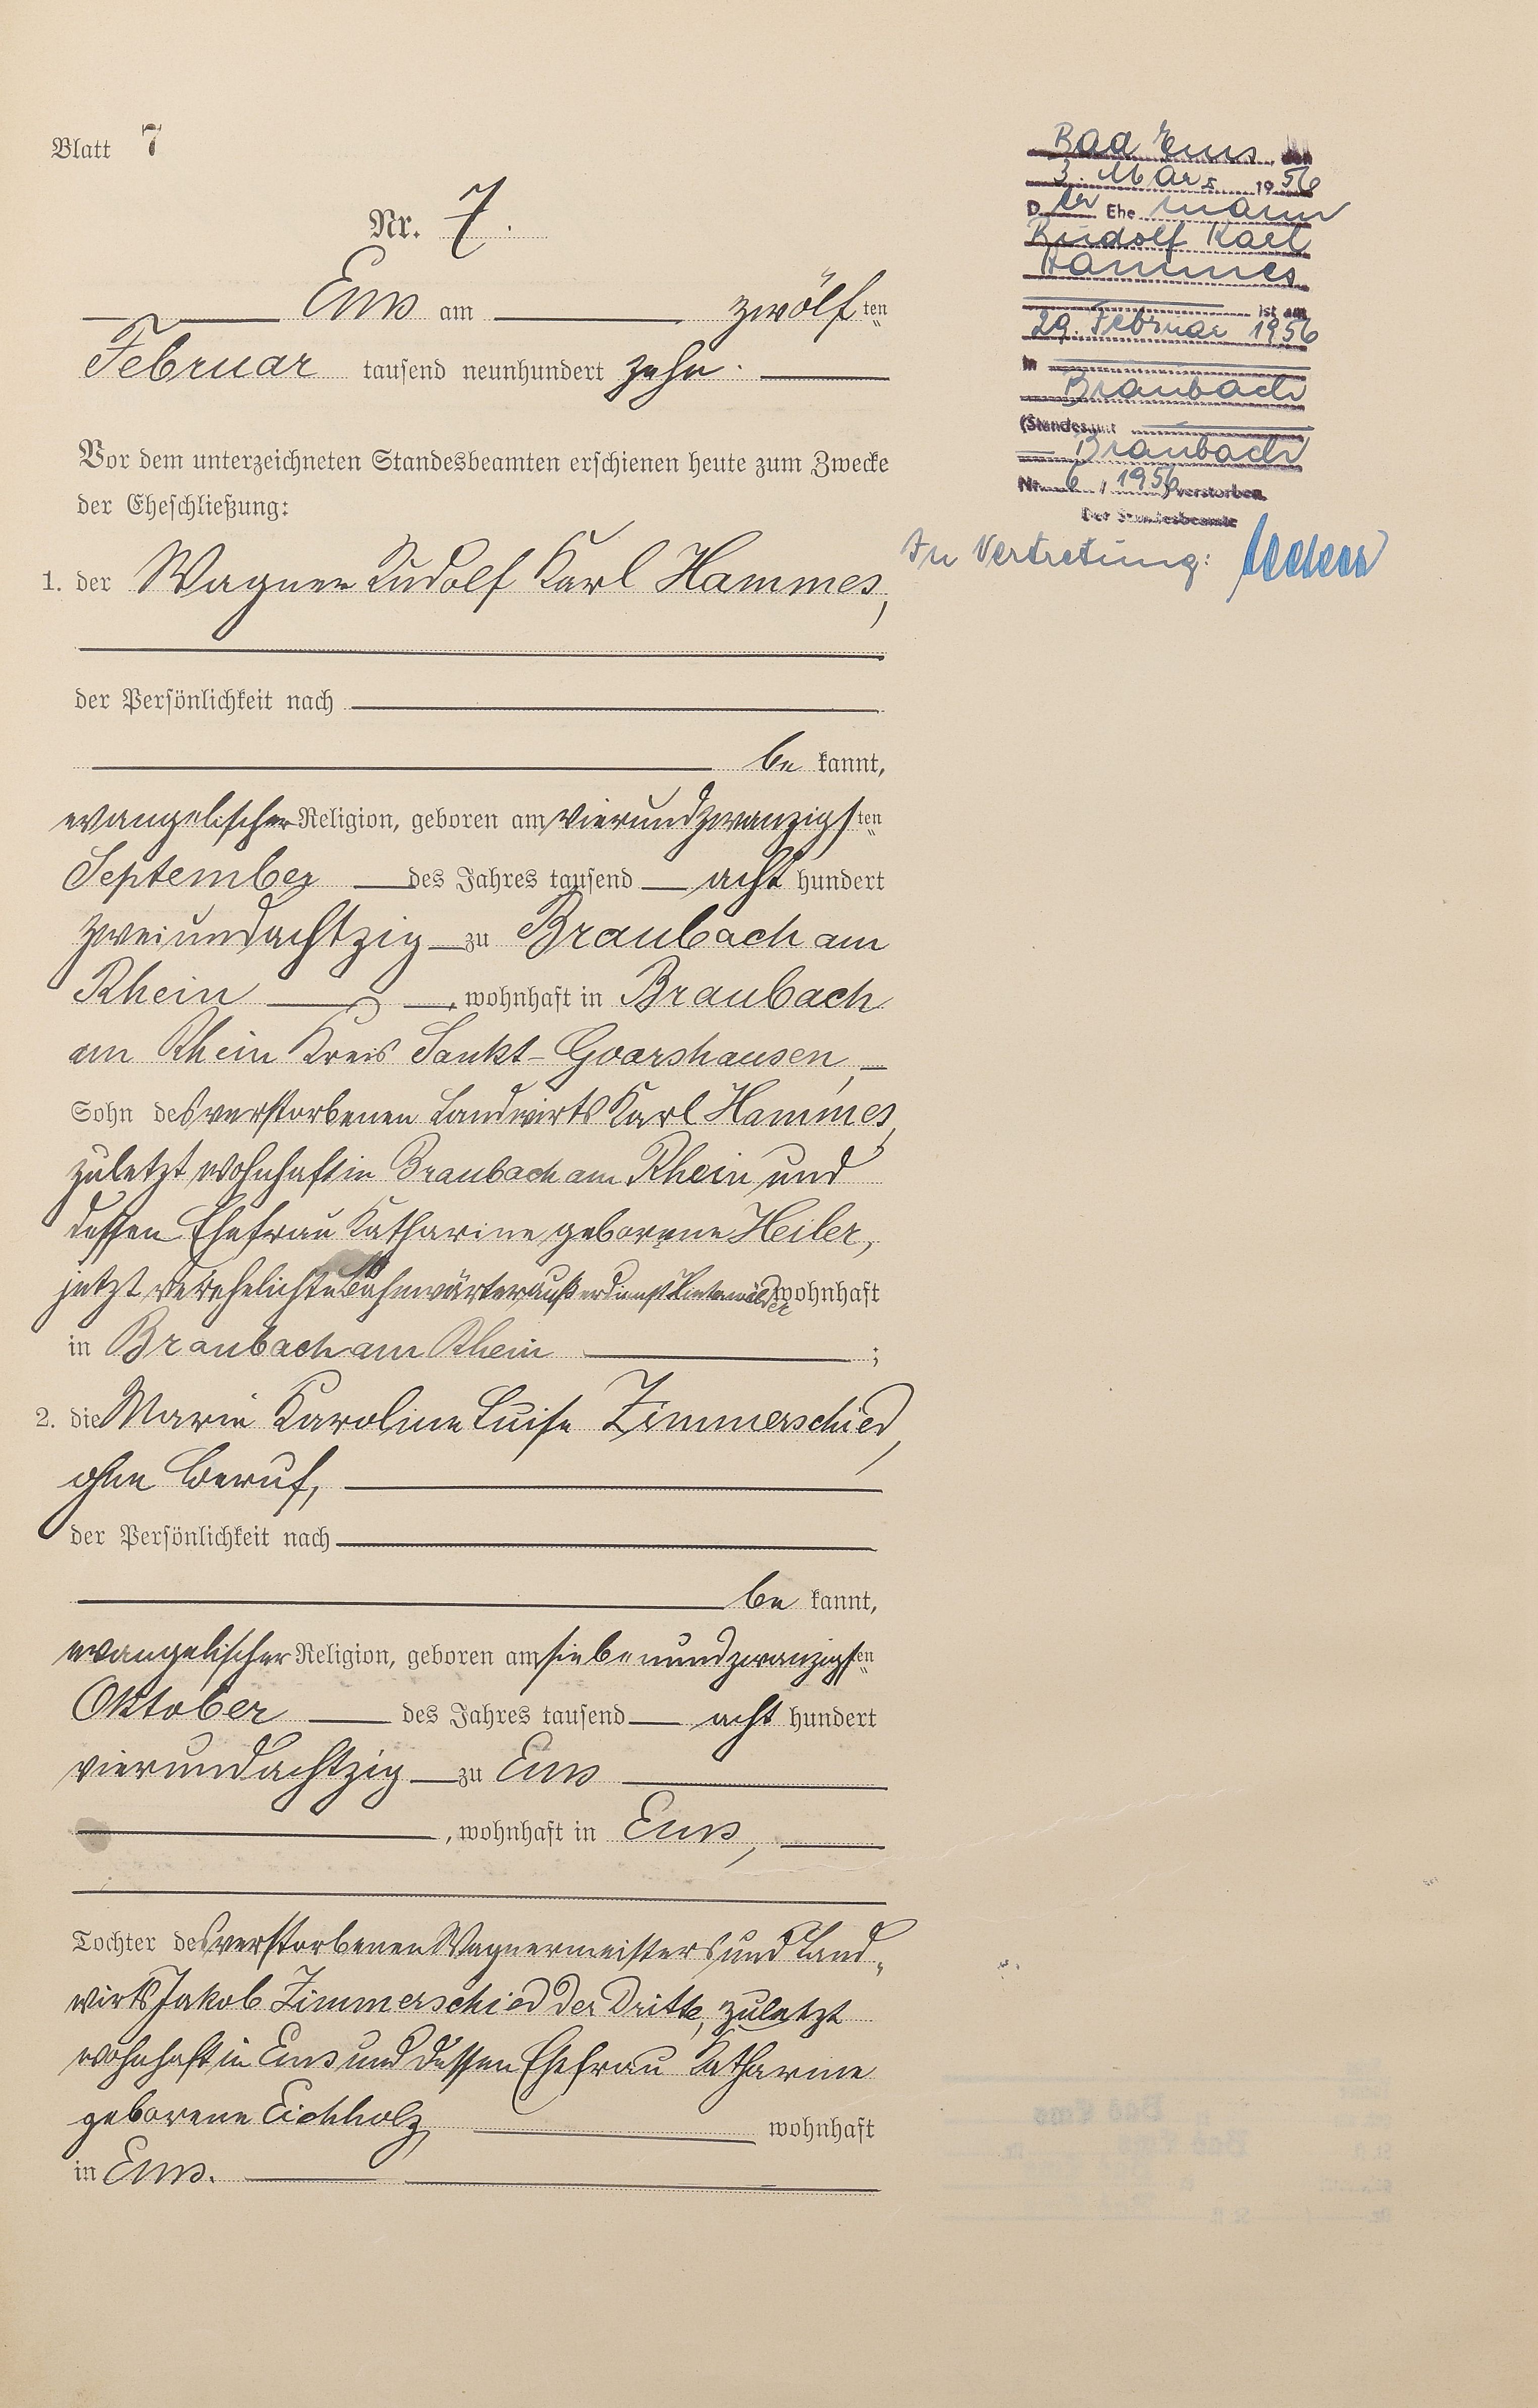 Blatt 7
Nr. 7.
Ems am zwölf ten
Februar tausend neunhundert zehn.
Vor dem unterzeichneten Standesbeamten erschienen heute zum Zwecke
der Eheschließung:
1. der Wagner Rudolf Karl Hammes,
der Persönlichkeit nach
be kannt,
evangelischer Religion, geboren am vierundzwanzigs ten
September des Jahres tausend acht hundert
zweiundachtzig zu Braubach am
Rhein, wohnhaft in Braubach
am Rhein Kreis Sankt-Goarshausen,
Sohn des verstorbenen Landwirts Karl Hammes,
zuletzt wohnhaft in Braubach am Rhein und
dessen Ehefrau Katharine geborene Heiler,
jetzt verehelichte Bahnwärter außer Dienst wohnhaft
in Braubach am Rhein ;
2. die Marie Karoline Luise Zimmerschied,
ohne Beruf,
der Persönlichkeit nach
be kannt,
evangelischer Religion, geboren am siebenundzwanzigs ten
Oktober des Jahres tausend acht hundert
vierundachtzig zu Ems
, wohnhaft in Ems,
Tochter des verstorbenen Wagnermeisters und Land-
wirts Jakob Zimmerschied der Dritte, zuletzt
wohnhaft in Ems und dessen Ehefrau Katharine
geborene Eichholz, wohnhaft
in Ems.
Bad Ems, den
3. März 1956
Der Ehemann
Rudolf Karl
Hammes
ist am
29. Februar 1956
in
Braubach
(Standesamt
Braubach
Nr. 6 / 1956) verstorben.
Der Standesbeamte
In Vertretung: